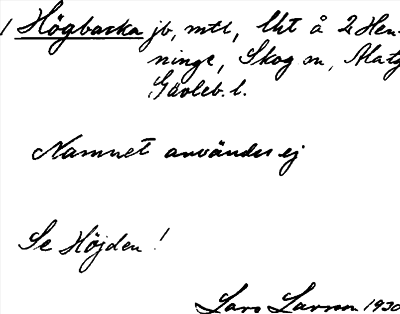 1 Högbacka jb, mtl, lht å 2 Hen-
ninge, Skog sn, Ala tg
Gävleb. l.
Namnet användes ej
Se Höjden!
Lars Larsson 1930